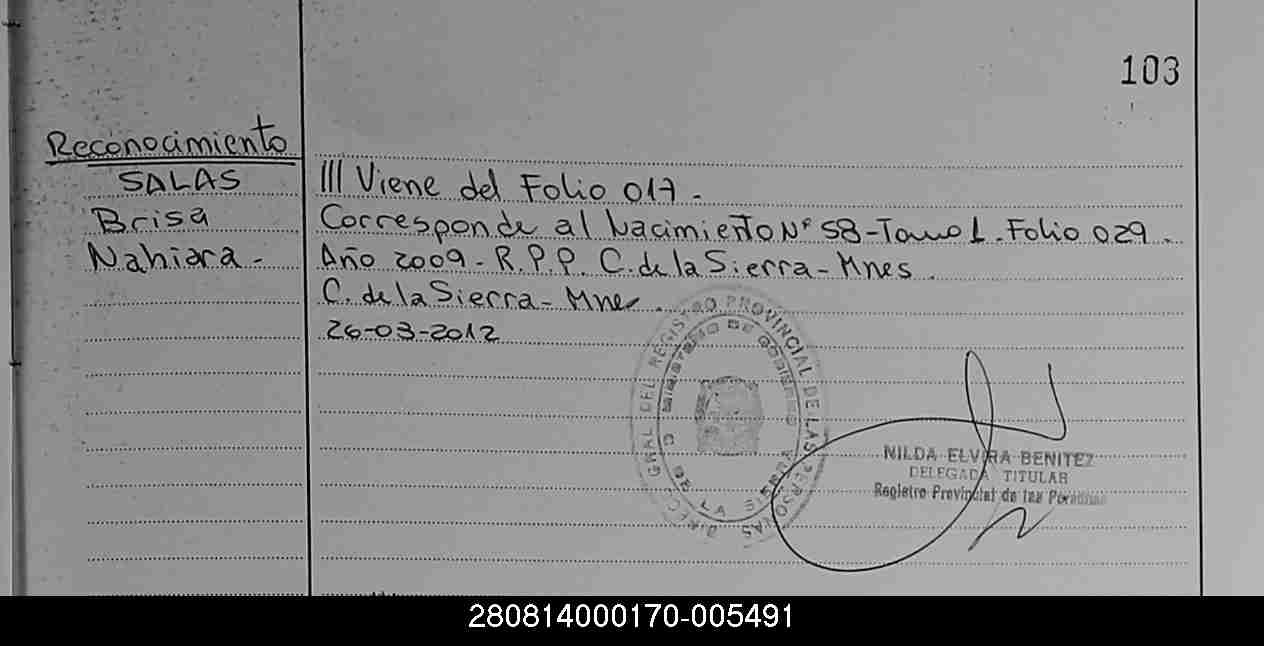 103
Reconocimiento
SALAS
Brisa
Nahiara -
III Viene del Folio 017 -
Corresponde al Nacimiento N° 58 - Tomo 1 - Folio 029 -
Año 2009 - R.P.P. C. de la Sierra - Mnes
C. de la Sierra - Mnes
26-03-2012
DIREC. GRAL DEL REGISTRO PROVINCIAL DE LAS PERSONAS
MINISTERIO DE GOBIERNO
C DE LA SIERRA
NILDA ELVIRA BENITEZ
DELEGADA TITULAR
Registro Provincial de las Personas
280814000170-005491